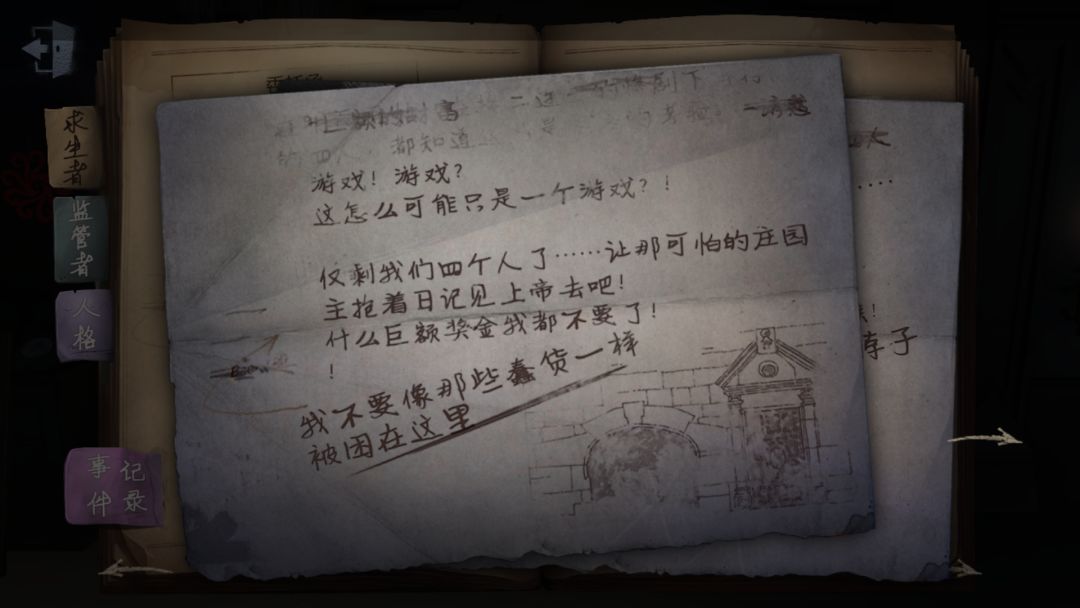 求生者
监管者
人格
事件记录
委托函
巨额的财富
二
下
的四
都知道
诱惑
游戏！游戏？
这怎么可能只是一个游戏？！
仅剩我们四个人了……让那可怕的庄园
主抱着日记见上帝去吧！
什么巨额奖金我都不要了！
！
我不要像那些蠢货一样
被困在这里
……
！
孬子